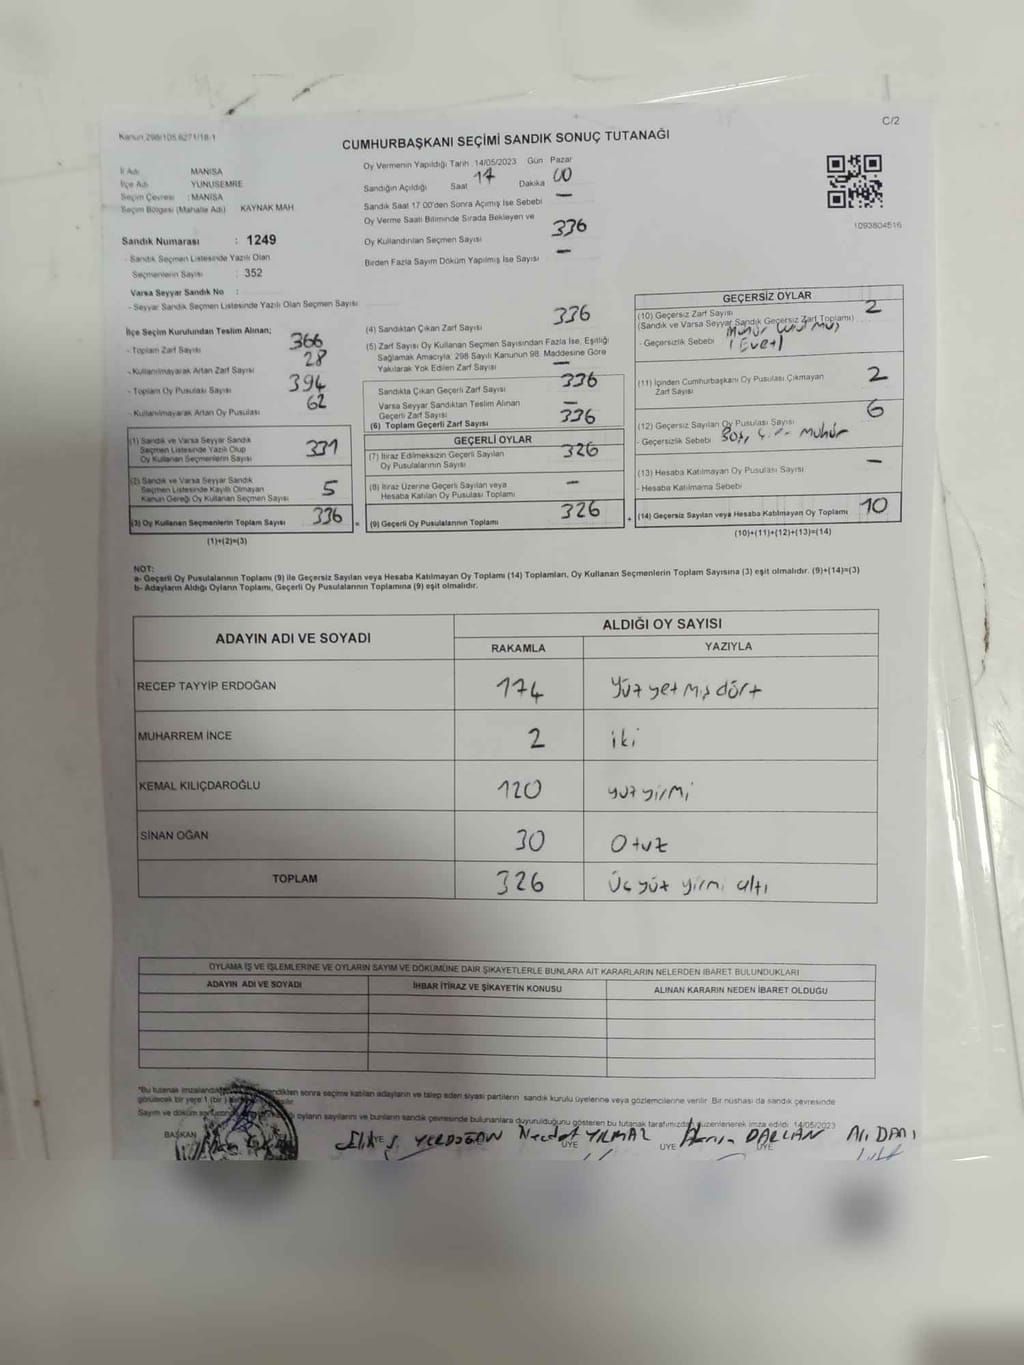 C/2
Kanun 298/105,6271/18-1
CUMHURBAŞKANI SEÇİMİ SANDIK SONUÇ TUTANAĞI
İl Adı : MANİSA
İlçe Adı : YUNUSEMRE
Seçim Çevresi : MANİSA
Seçim Bölgesi (Mahalle Adı) KAYNAK MAH
Sandık Numarası : 1249
- Sandık Seçmen Listesinde Yazılı Olan
Seçmenlerin Sayısı : 352
Varsa Seyyar Sandık No :
- Seyyar Sandık Seçmen Listesinde Yazılı Olan Seçmen Sayısı
Oy Vermenin Yapıldığı Tarih : 14/05/2023 Gün Pazar
Sandığın Açıldığı Saat 17 Dakika 00
Sandık Saat 17 00'den Sonra Açımış İse Sebebi —
Oy Verme Saati Bitiminde Sırada Bekleyen ve
Oy Kullandırılan Seçmen Sayısı 336
Birden Fazla Sayım Döküm Yapılmış İse Sayısı —
1093804516
İlçe Seçim Kurulundan Teslim Alınan;
- Toplam Zarf Sayısı 366
- Kullanılmayarak Artan Zarf Sayısı 28
- Toplam Oy Pusulası Sayısı 394
- Kullanılmayarak Artan Oy Pusulası 62
(1) Sandık ve Varsa Seyyar Sandık
Seçmen Listesinde Yazılı Olup
Oy Kullanan Seçmenlerin Sayısı 331
(2) Sandık ve Varsa Seyyar Sandık
Seçmen Listesinde Kayıtlı Olmayan
Kanun Gereği Oy Kullanan Seçmen Sayısı 5
(3) Oy Kullanan Seçmenlerin Toplam Sayısı 336
(1)+(2)=(3)
(4) Sandıktan Çıkan Zarf Sayısı 336
(5) Zarf Sayısı Oy Kullanan Seçmen Sayısından Fazla İse, Eşitliği
Sağlamak Amacıyla; 298 Sayılı Kanunun 98. Maddesine Göre
Yakılarak Yok Edilen Zarf Sayısı —
Sandıkta Çıkan Geçerli Zarf Sayısı 336
Varsa Seyyar Sandıktan Teslim Alınan
Geçerli Zarf Sayısı —
(6) Toplam Geçerli Zarf Sayısı 336
GEÇERLİ OYLAR
(7) İtiraz Edilmeksizin Geçerli Sayılan
Oy Pusulalarının Sayısı 326
(8) İtiraz Üzerine Geçerli Sayılan veya
Hesaba Katılan Oy Pusulası Toplamı —
(9) Geçerli Oy Pusulalarının Toplamı 326
GEÇERSİZ OYLAR
(10) Geçersiz Zarf Sayısı 2
(Sandık ve Varsa Seyyar Sandık Geçersiz Zarf Toplamı)
- Geçersizlik Sebebi (Evet)
(11) İçinden Cumhurbaşkanı Oy Pusulası Çıkmayan
Zarf Sayısı 2
(12) Geçersiz Sayılan Oy Pusulası Sayısı 6
- Geçersizlik Sebebi Boş, Mühür
(13) Hesaba Katılmayan Oy Pusulası Sayısı —
- Hesaba Katılmama Sebebi
(14) Geçersiz Sayılan veya Hesaba Katılmayan Oy Toplamı 10
(10)+(11)+(12)+(13)=(14)
NOT:
a- Geçerli Oy Pusulalarının Toplamı (9) ile Geçersiz Sayılan veya Hesaba Katılmayan Oy Toplamı (14) Toplamları, Oy Kullanan Seçmenlerin Toplam Sayısına (3) eşit olmalıdır. (9)+(14)=(3)
b- Adayların Aldığı Oyların Toplamı, Geçerli Oy Pusulalarının Toplamına (9) eşit olmalıdır.
ADAYIN ADI VE SOYADI ALDIĞI OY SAYISI
RAKAMLA YAZIYLA
RECEP TAYYİP ERDOĞAN 174 Yüz yetmişdört
MUHARREM İNCE 2 iki
KEMAL KILIÇDAROĞLU 120 yüzyirmi
SİNAN OĞAN 30 Otuz
TOPLAM 326 Üçyüz yirmi altı
OYLAMA İŞ VE İŞLEMLERİNE VE OYLARIN SAYIM VE DÖKÜMÜNE DAİR ŞİKAYETLERLE BUNLARA AİT KARARLARIN NELERDEN İBARET BULUNDUKLARI
ADAYIN ADI VE SOYADI İHBAR İTİRAZ VE ŞİKAYETİN KONUSU ALINAN KARARIN NEDEN İBARET OLDUĞU
"Bu tutanak sonra seçime katılan adayların ve talep eden siyasi partilerin sandık kurulu üyelerine veya gözlemcilerine verilir. Bir nüshası da sandık çevresinde
görülecek bir yere 1 (bir)
Sayım ve döküm oyların sayılarını ve bunların sandık çevresinde bulunanlara duyurulduğunu gösteren bu tutanak tarafımızdan düzenlenerek imza edildi. 14/05/2023
BAŞKAN ÜYE ÜYE ÜYE ÜYE
YERDOĞAN Necdet YILMAZ DARCAN Ali